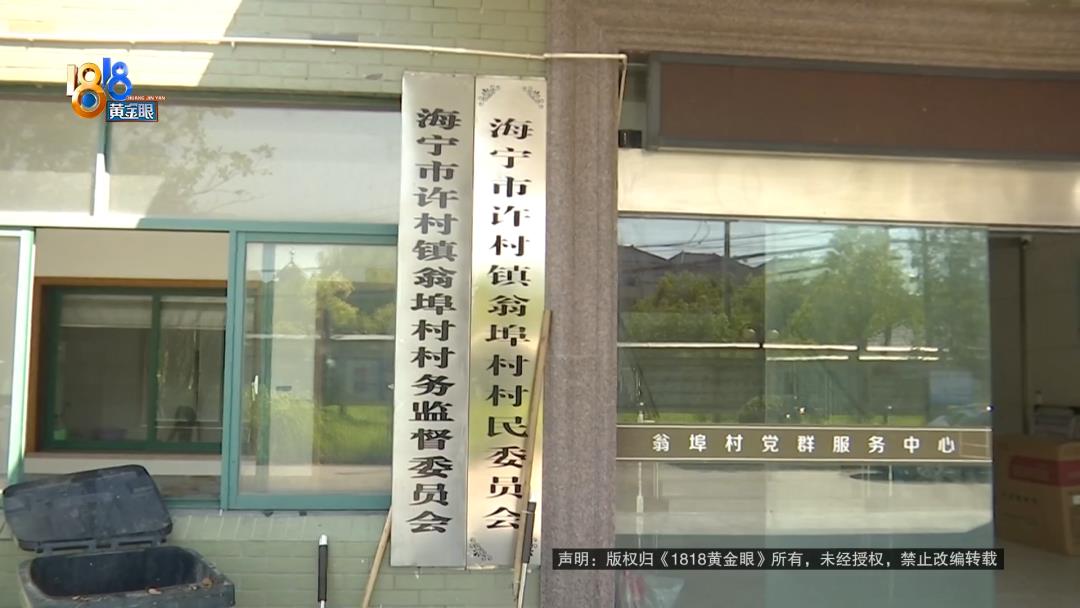 1818
HUANG JIN YAN
黄金眼
海宁市许村镇翁埠村村务监督委员会
海宁市许村镇翁埠村村民委员会
翁埠村党群服务中心
声明：版权归《1818黄金眼》所有，未经授权，禁止改编转载